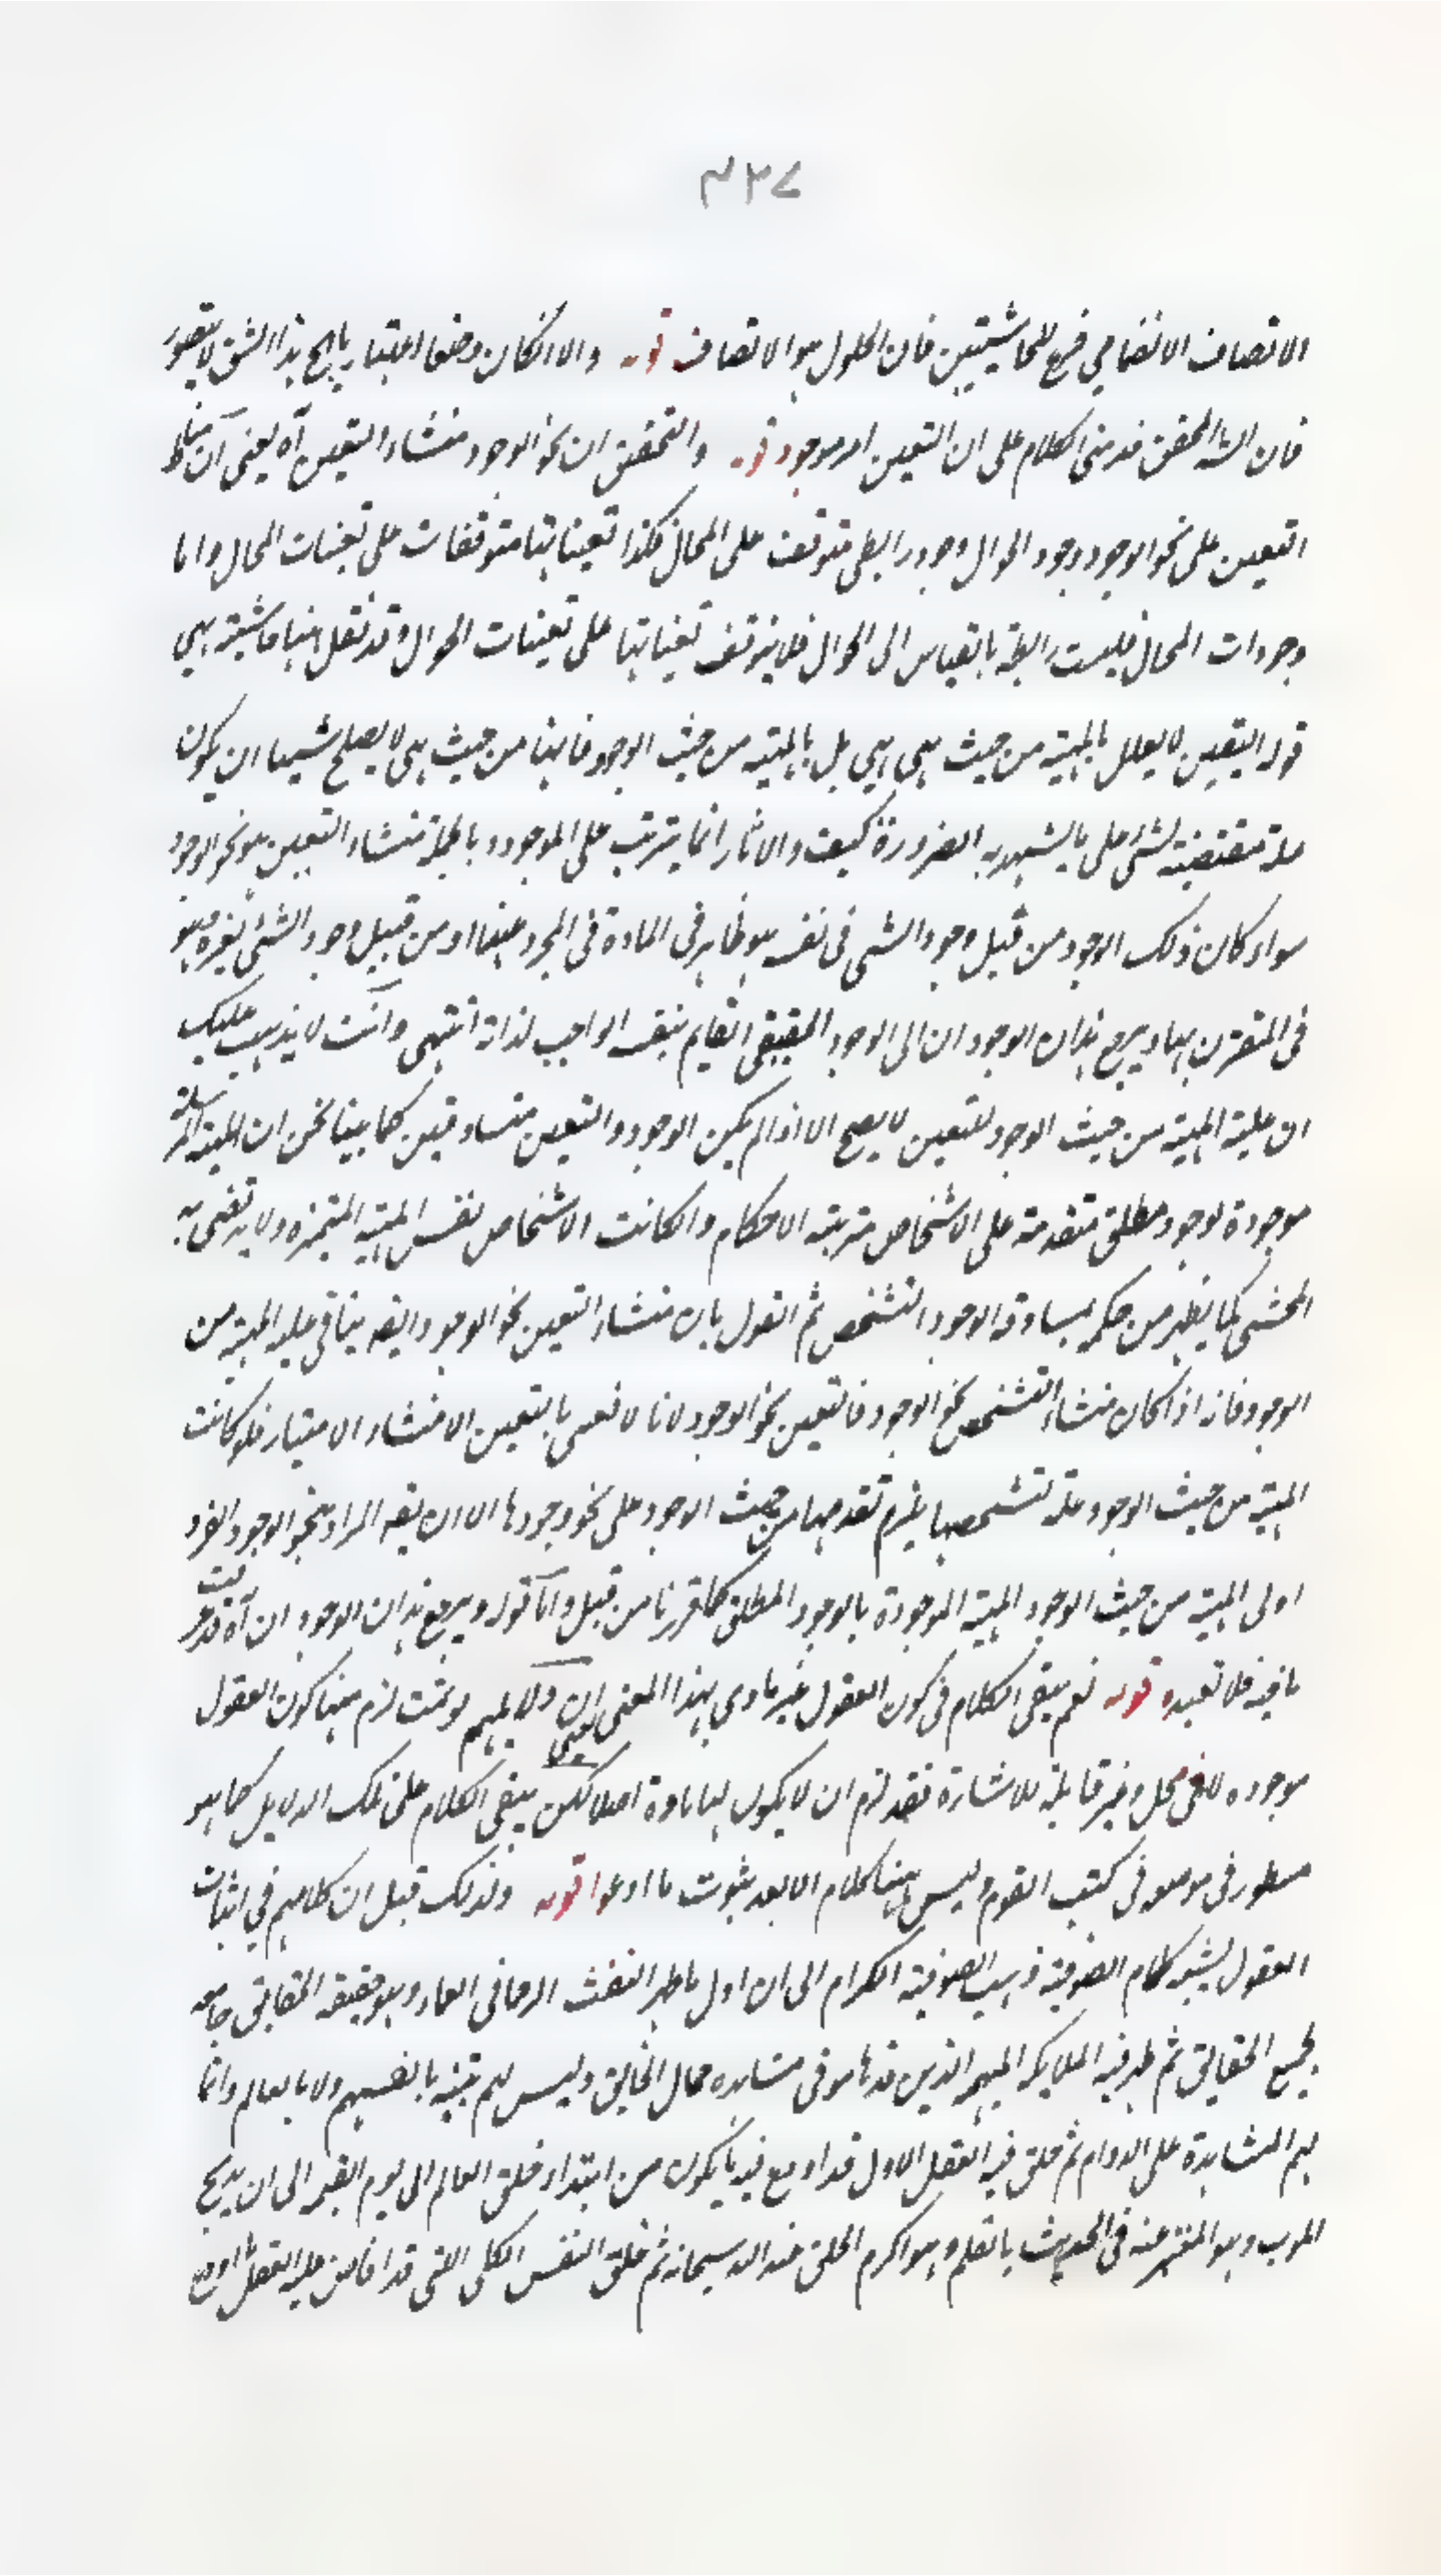 ٤٣٧
الاتصاف الانضمامي فرع للحاشيتين فان الحلول هو الاتصاف قوله والا لكان وصفا اعتباريا الخ هذا الشق لا يتصور
فان الشه المحقق قد بنى الكلام على ان التعين امر موجود قوله والتحقيق ان نحو الوجود منشاء التعين آه يعني ان مناط
التعين على نحو الوجود ووجود الحوال وجود رابطي متوقف على المحال فكذا تعيناتها متوقفات على تعينات المحال واما
وجودات المحال فليست رابطة بالقياس الى الحوال فلا يتوقف تعيناتها على تعينات الحوال وقد نقل هنا حاشية هي
قوله التعين لا يعلل بالمهية من حيث هي هي بل بالمهية من حيث الوجود فانها من حيث هي لا يصلح شيها ان يكون
علة مقتضية لشئ على ما يشهد به الضرورة كيف والاثار انما يترتب على الموجود وبالجملة منشاء التعين هو نحو الوجود
سواء كان ذلك الوجود من قبيل وجود الشى فى نفسه هو ظاهر فى المادة فى المجرد عنها او من قبيل وجود الشئ لغيره هو
فى المقترن بها ويرجع هذان الوجودان الى الوجود الحقيقى القايم بنفسه الواجب لذاته انتهى وانت لا يذهب عليك
ان علية المهية من حيث الوجود للتعين لا يصح الا اذا لم يكن الوجود والتعين متساوقين كما بينا نحن ان المهية المرسلة
موجودة بوجود مطلق متقدمة على الاشخاص مترتبة الاحكام وان كانت الاشخاص نفس المهية المتميزه ولا يرتضى به
المحشى كما يظهر من حكمه بمساوقة الوجود التشخص ثم القول بان منشاء التعين نحو الوجود ايضه ينافي علية المهية من
الوجود فانه اذا كان منشاء التشخص نحو الوجود فالتعين نحو الوجود لانا لا نعنى بالتعين الا منشاء الامتياز فلو كانت
المهية من حيث الوجود علة لتشخصها يلزم تقدمها من حيث الوجود على نحو وجودها الا ان يقه المراد بنحو الوجود الفرد
اولى المهية من حيث الوجود المهية الموجودة بالوجود المطلق كما قررنا من قبل واما قوله ويرجع هذان الوجودان آه قد عرفت
ما فيه فلا نعيده قوله نعم يبقى الكلام في كون العقول غير مادي بهذا المعنى يعني ان دلايلهم لو تمت لزم منها كون العقول
موجوده لا في محل وغير قابلة للاشارة فقد لزم ان لا يكون لها مادة اصلا لكن يبقى الكلام على تلك الدلايل كما هو
مسطور في موضعه فى كتب القوم وليس هنا كلام الا بعد ثبوت ما ادعوا قوله ولذلك قيل ان كلامهم في اثبات
العقول يشبه كلام الصوفية ذهب الصوفية الكرام الى ان اول ما ظهر النفث الرحمانى العماء وهو حقيقة الحقايق جامعه
لجميع الحقايق ثم ظهر فيه الملايكه المهيم الذين قد هاموا فى مشاهده جمال الخالق وليس لهم تنبه بانفسهم ولا بالعالم وانما
لهم المشاهدة على الدوام ثم خلق فيه العقل الاول قد اودع فيه ما يكون من ابتداء خلق العالم الى يوم القيمه الى ان يذبح
الموت وهو المفسر عنه فى الحديث بالقلم وهو اكرم الخلق عند الله سبحانه ثم خلق النفس الكلى التى قد افاض عليه العقل ما اودع